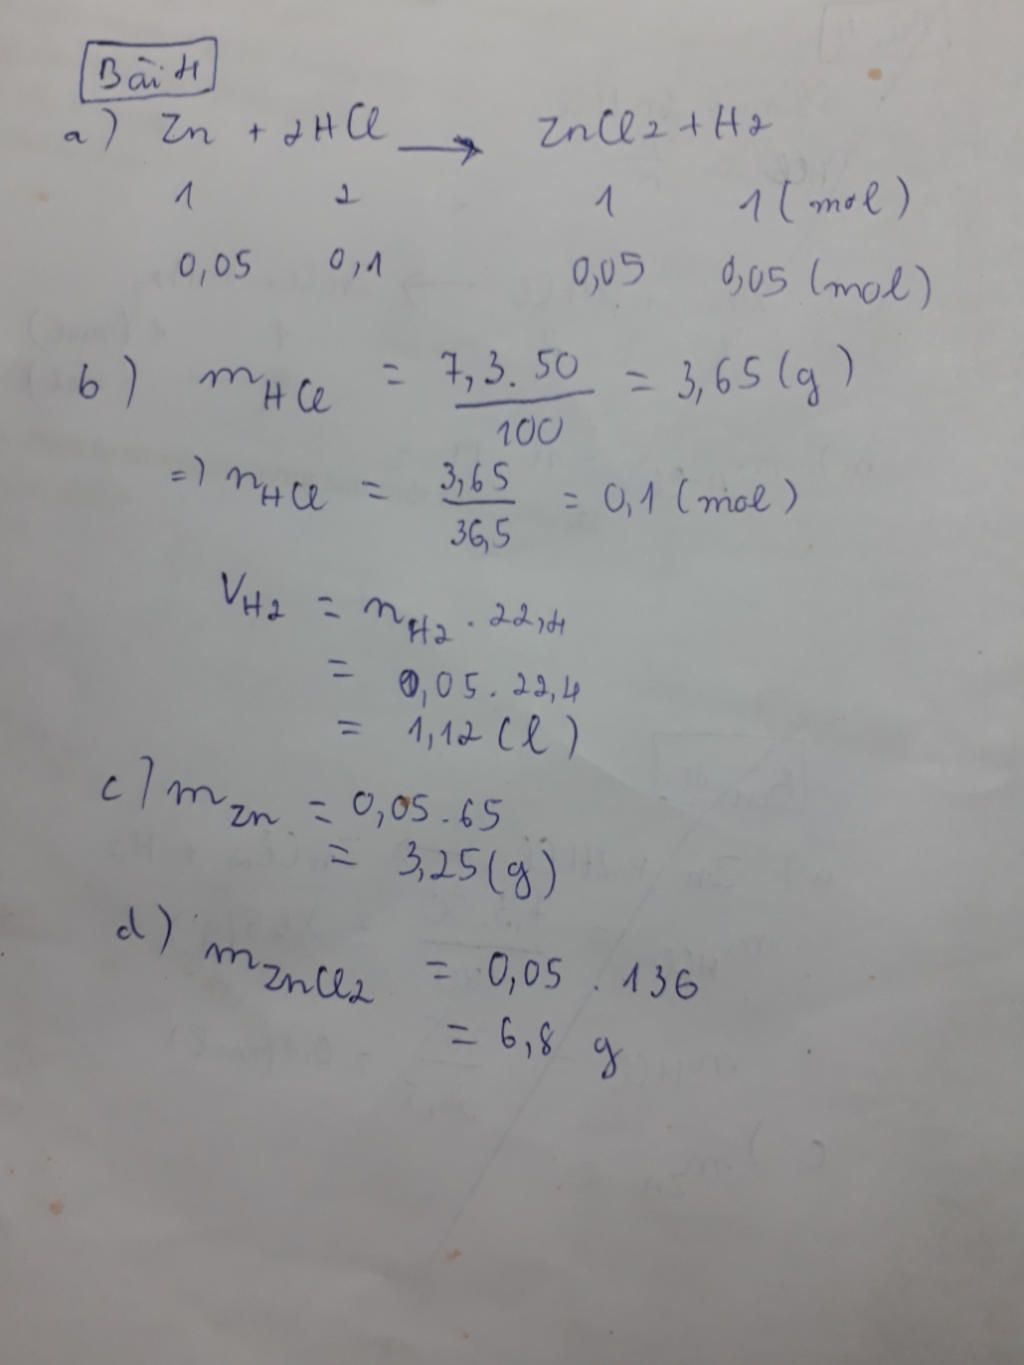 Bài 4
a) Zn + 2HCl → ZnCl2 + H2
1 2 1 1 (mol)
0,05 0,1 0,05 0,05 (mol)
b) mHCl = 7,3.50/100 = 3,65 (g)
=) nHCl = 3,65/36,5 = 0,1 (mol)
VH2 = nH2 . 22,4
= 0,05. 22,4
= 1,12 (l)
c) mZn = 0,05.65
= 3,25 (g)
d) mZnCl2 = 0,05 . 136
= 6,8 g